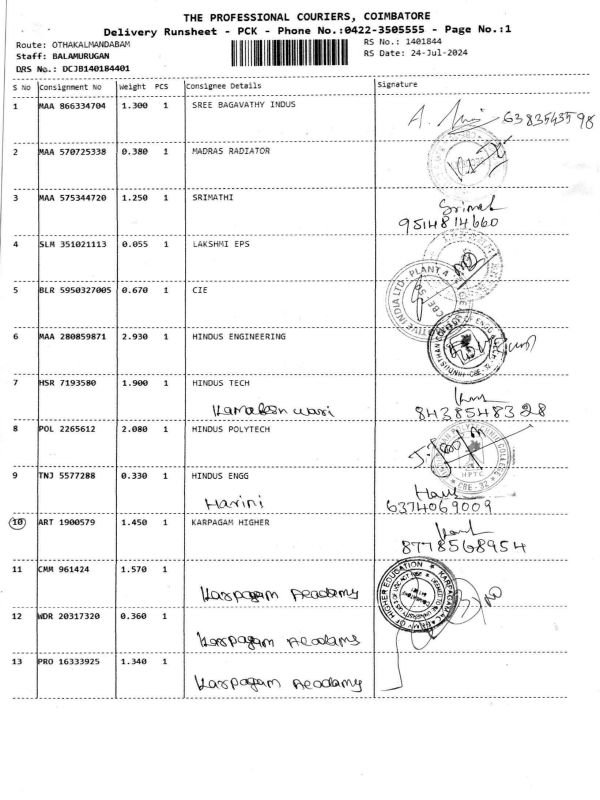 THE PROFESSIONAL COURIERS, COIMBATORE
Delivery Runsheet - PCK - Phone No.:0422-3505555 - Page No.:1
Route: OTHAKALMANDABAM
RS No.: 1401844
Staff: BALAMURUGAN
RS Date: 24-Jul-2024
DRS No.: DCJB140184401
S No Consignment No Weight PCS Consignee Details Signature
1 MAA 866334704 1.300 1 SREE BAGAVATHY INDUS
6383543598
2 MAA 570725338 0.380 1 MADRAS RADIATOR
3 MAA 575344720 1.250 1 SRIMATHI
9514814660
4 SLM 351021113 0.055 1 LAKSHMI EPS
INDIA LTD - PLANT 4
5 BLR 5950327005 0.670 1 CIE
6 MAA 280859871 2.930 1 HINDUS ENGINEERING
7 HSR 7193580 1.900 1 HINDUS TECH
Kamaleshwari 8438548328
8 POL 2265612 2.080 1 HINDUS POLYTECH
9 TNJ 5577288 0.330 1 HINDUS ENGG
Harini 6374069009
10 ART 1900579 1.450 1 KARPAGAM HIGHER
8778568954
11 CMM 961424 1.570 1
Karpagam Academy
KARPAGAM ACADEMY OF HIGHER EDUCATION
12 WDR 20317320 0.360 1
Karpagam Academy
13 PRO 16333925 1.340 1
Karpagam Academy